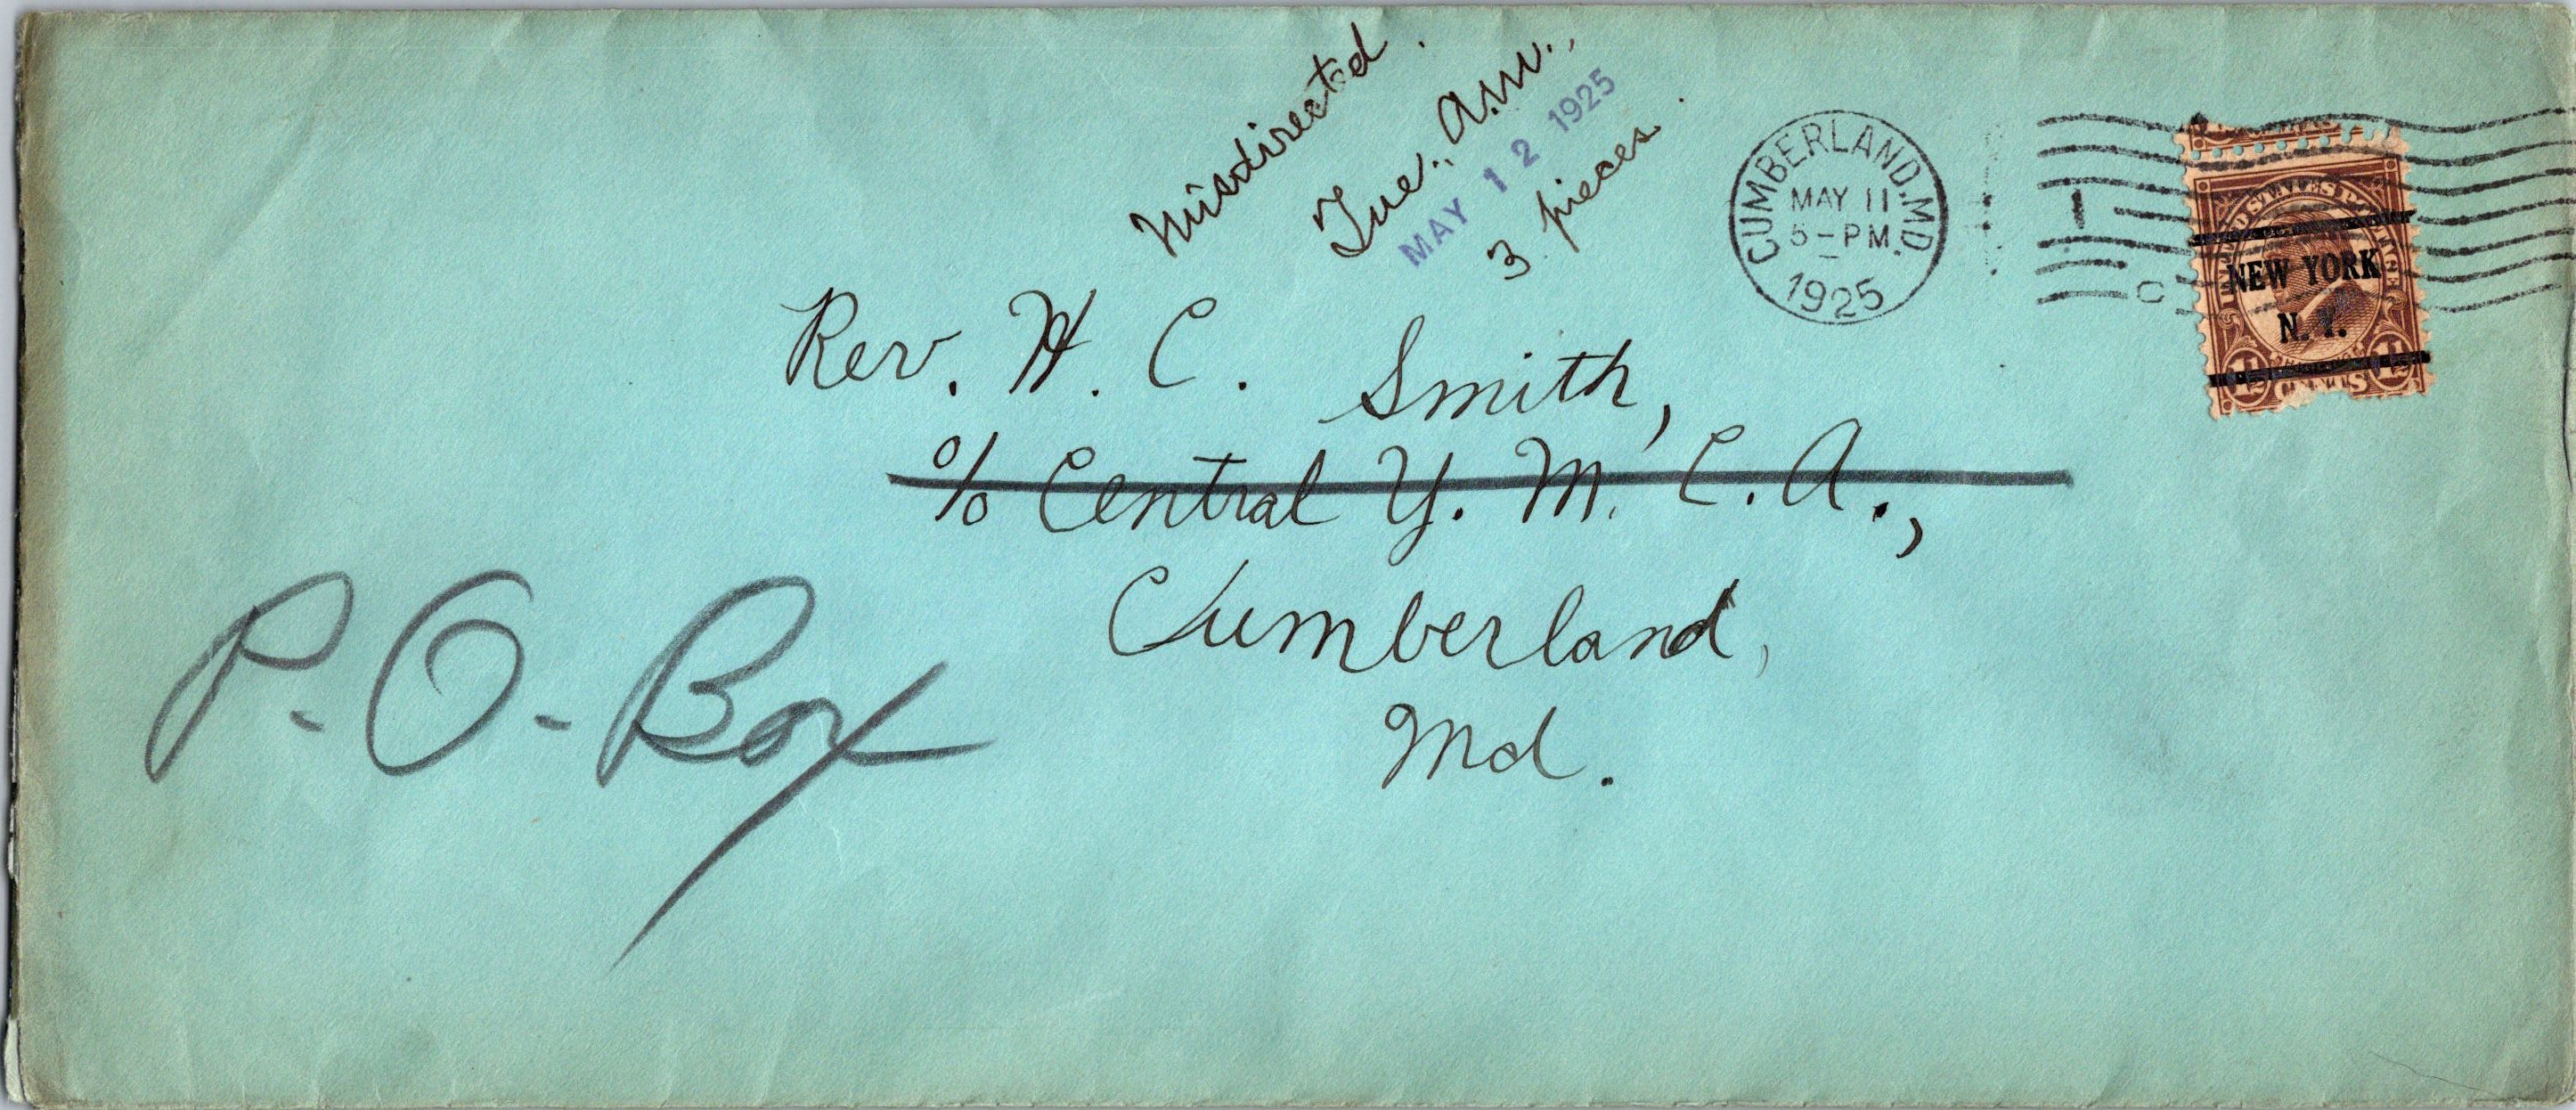 Misdirected.
Tue., a.m.,
MAY 12 1925
3 pieces.
CUMBERLAND, MD.
MAY 11
5-PM
1925
NEW YORK
N. Y.
Rev. H. C. Smith,
c/o Central Y. M. C. A.,
Cumberland,
Md.
P. O. Box